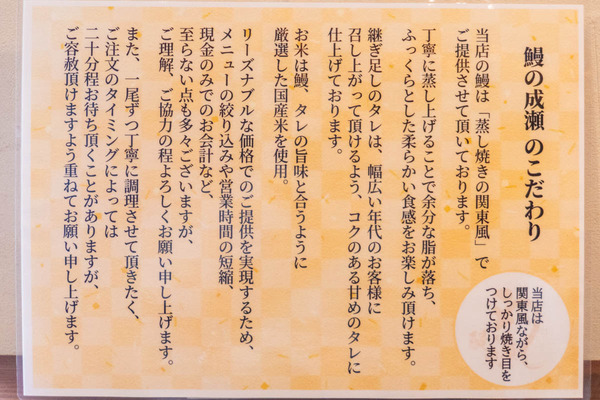 鰻の成瀬 のこだわり
当店の鰻は「蒸し焼きの関東風」で
ご提供させて頂いております。
丁寧に蒸し上げることで余分な脂が落ち、
ふっくらとした柔らかい食感をお楽しみ頂けます。
継ぎ足しのタレは、幅広い年代のお客様に
召し上がって頂けるよう、コクのある甘めのタレに
仕上げております。
お米は鰻、タレの旨味と合うように
厳選した国産米を使用。
リーズナブルな価格でのご提供を実現するため、
メニューの絞り込みや営業時間の短縮、
現金のみでのお会計など、
至らない点も多々ございますが、
ご理解、ご協力の程よろしくお願い申し上げます。
また、一尾ずつ丁寧に調理させて頂きたく、
ご注文のタイミングによっては
二十分程お待ち頂くことがありますが、
ご容赦頂けますよう重ねてお願い申し上げます。
当店は
関東風ながら、
しっかり焼き目を
つけております